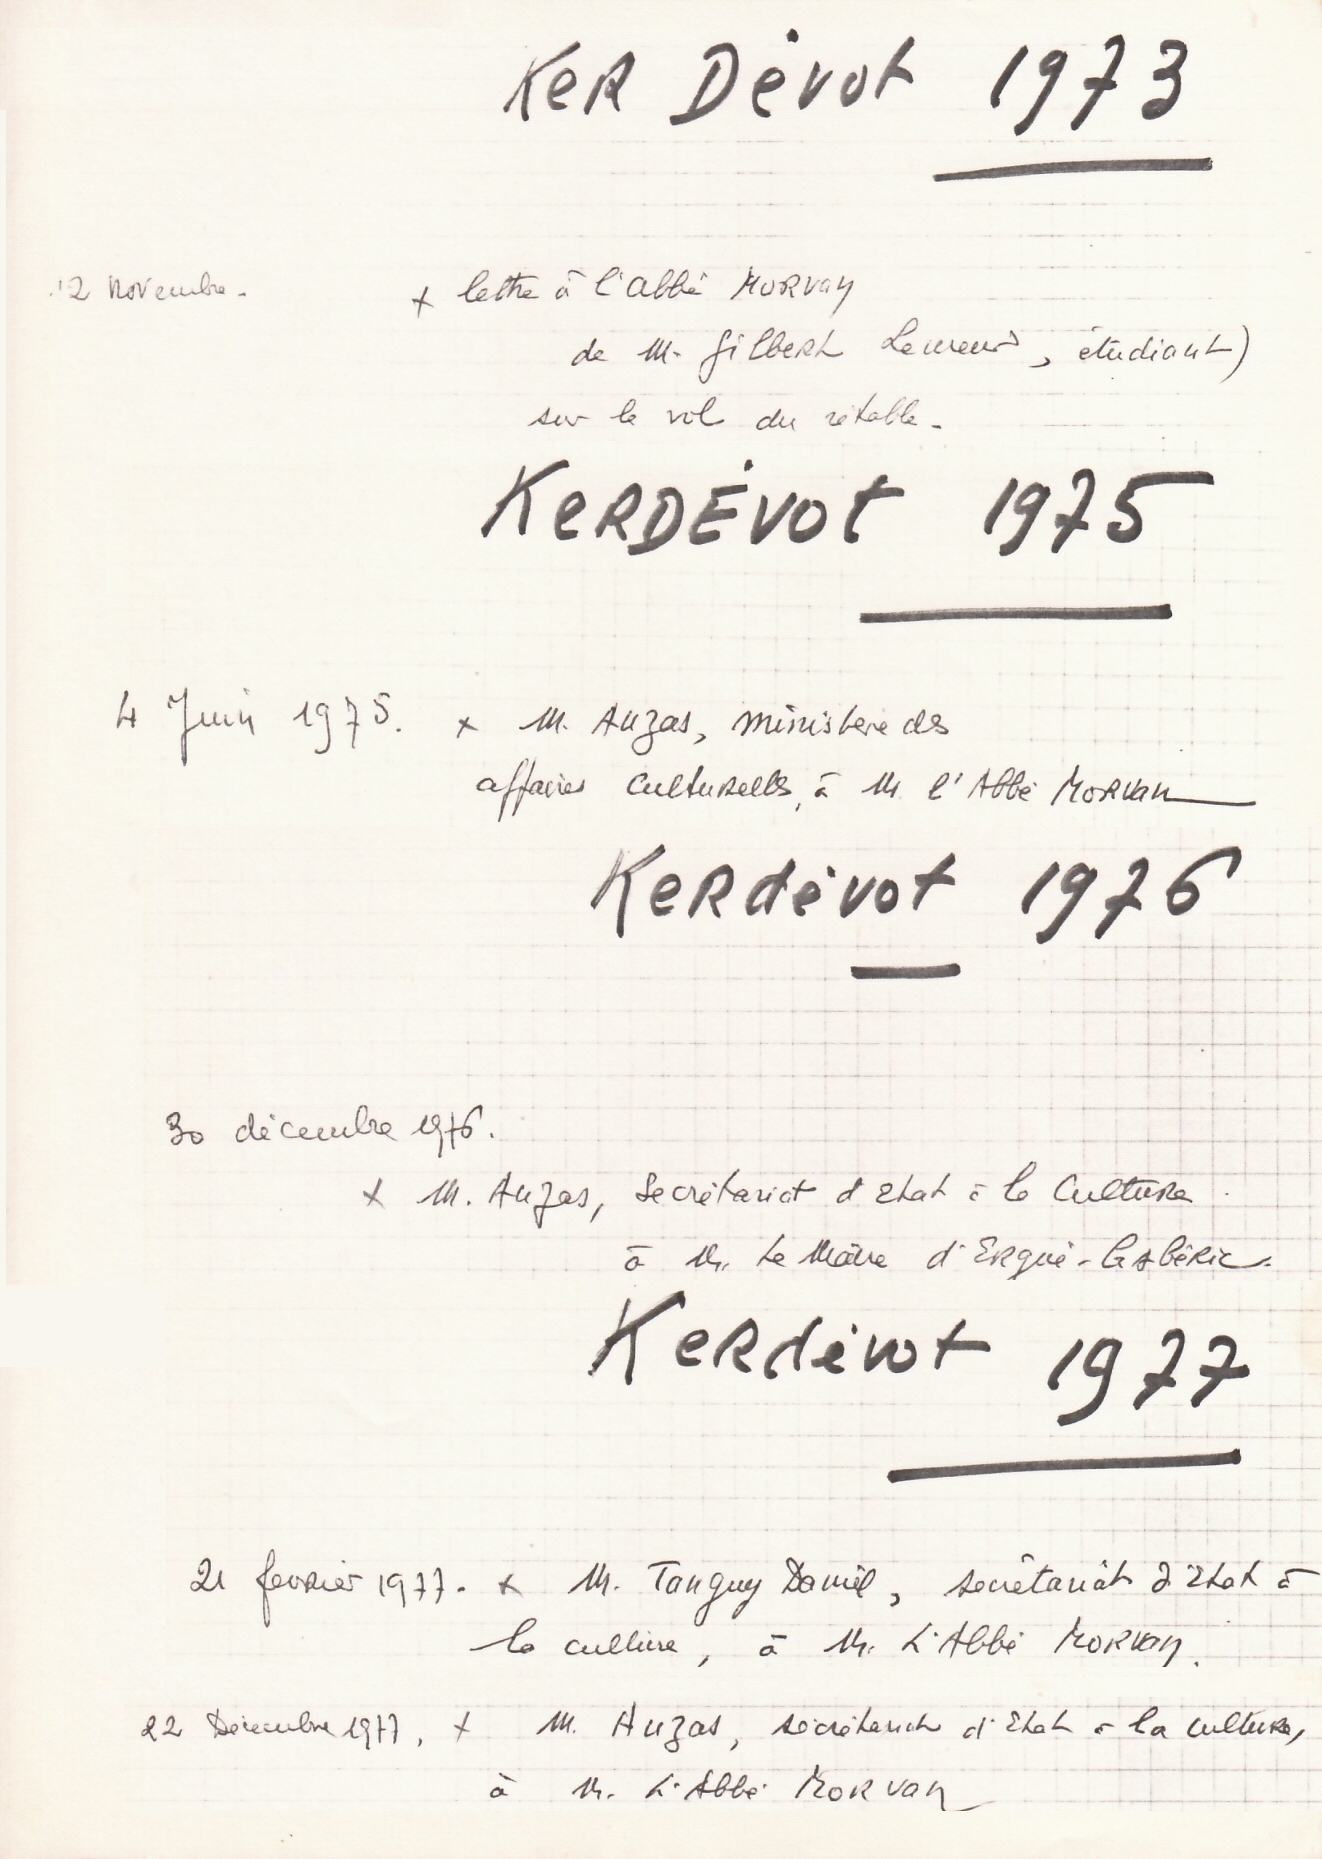 KER Dévot 1973
12 novembre.
x lettre à l'abbé MORVAN
de M. Gilbert , étudiant)
sur le vol du rétable.
KERDÉVOT 1975
4 Juin 1975. x M. Auzas, Ministère des
affaires culturelles, à M. l'Abbé MORVAN
Kerdévot 1976
30 décembre 1976.
x M. Auzas, Secrétariat d'Etat à la Culture
à M. Le Maire d'Ergué-Gabéric.
Kerdévot 1977
21 février 1977. x M. Tanguy Daniel, secrétariat d'Etat à
la culture, à M. L'Abbé MORVAN.
22 Décembre 1977, x M. Auzas, secrétariat d'Etat à la culture,
à M. L'Abbé MORVAN